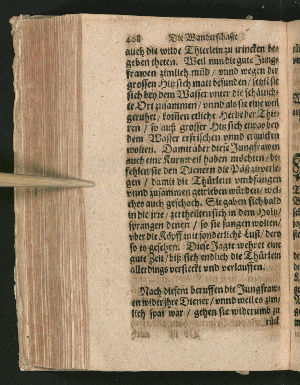 408 Die Wanderschafft
auch die wilde Thierlein zu trincken be-
geben theten. Weil nun die gute Jung-
frawen zimlich müd / vnnd wegen der
grossen Hitz sich matt befunden / setzt sie
sich bey dem Wasser vnter die schättich-
te Ort zusammen / vnnd als sie eine weil
geruhet / kommen etliche Herde der Thie-
ren / so auß grosser Hitz sich etwas bey
dem Wasser erfrischen vnnd erquicken
wolten. Damit aber diese Jungfrawen
auch eine Kurtzweil haben möchten / be-
fehlen sie den Dienern die Päß zuverle-
gen / damit die Thürlein vmbfangen
vnnd zusammen getrieben würden / wel-
ches auch geschach. Sie gaben sich bald
in die jrre / zertheilten sich in dem Holtz /
sprangen denen / so sie fangen wolten /
vber die Köpff mit sonderliche Lust / deren
so es gesehen. Diese Jagte wehret eine
gute Zeit / biß sich endlich die Thürlein
allerdings versteckt vnd verlauffen.
Nach diesem beruffen die Jungfraw-
en widerjhre Diener / vnnd weil es zim-
lich spat war / gehen sie widerumb zu
rück